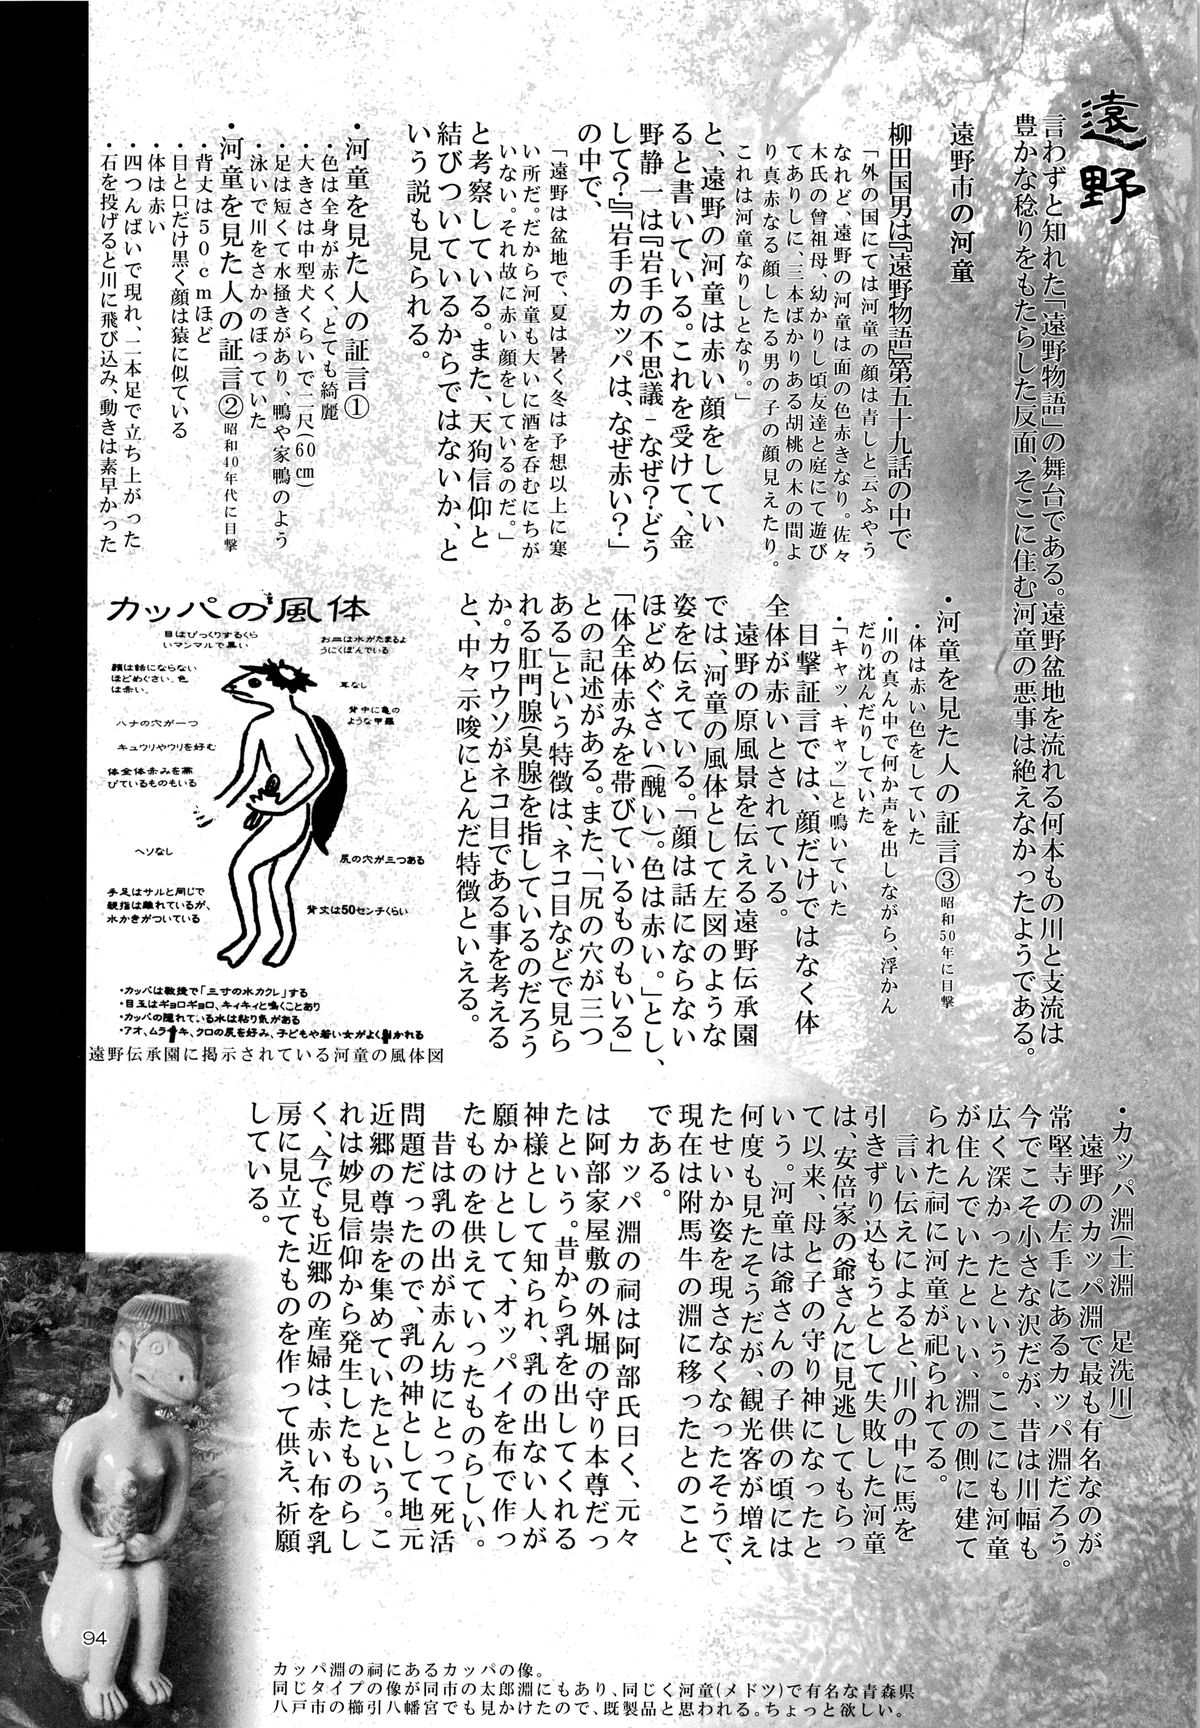 遠野
言わずと知れた「遠野物語」の舞台である。遠野盆地を流れる何本もの川と支流は
豊かな稔りをもたらした反面、そこに住む河童の悪事は絶えなかったようである。
遠野市の河童
柳田国男は『遠野物語』第五十九話の中で
「外の国にては河童の顔は青しと云ふやう
なれど、遠野の河童は面の色赤きなり。佐々
木氏の曾祖母、幼かりし頃友達と庭にて遊び
てありしに、三本ばかりある胡桃の木の間よ
り真赤なる顔したる男の子の顔見えたり。
これは河童なりしとなり。」
と、遠野の河童は赤い顔をしてい
ると書いている。これを受けて、金
野静一は『岩手の不思議-なぜ?どう
して?』『岩手のカッパは、なぜ赤い?』
の中で、
「遠野は盆地で、夏は暑く冬は予想以上に寒
い所だ。だから河童も大いに酒を呑むにちが
いない。それ故に赤い顔をしているのだ。」
と考察している。また、天狗信仰と
結びついているからではないか、と
いう説も見られる。
・河童を見た人の証言①
・色は全身が赤く、とても綺麗
・大きさは中型犬くらいで二尺(60㎝)
・足は短くて水掻きがあり、鴨や家鴨のよう
・泳いで川をさかのぼっていた
・河童を見た人の証言②昭和40年代に目撃
・背丈は50cmほど
・目と口だけ黒く顔は猿に似ている
・体は赤い
・四つんばいで現れ、二本足で立ち上がった
・石を投げると川に飛び込み、動きは素早かった
・河童を見た人の証言③昭和50年に目撃
・体は赤い色をしていた
・川の真ん中で何か声を出しながら、浮かん
だり沈んだりしていた
・「キャッ、キャッ」と鳴いていた
目撃証言では、顔だけではなく体
全体が赤いとされている。
遠野の原風景を伝える遠野伝承園
では、河童の風体として左図のような
姿を伝えている。「顔は話にならない
ほどめぐさい(醜い)。色は赤い。」とし、
「体全体赤みを帯びているものもいる」
との記述がある。また、「尻の穴が三つ
ある」という特徴は、ネコ目などで見ら
れる肛門腺(臭腺)を指しているのだろう
か。カワウソがネコ目である事を考える
と、中々示唆にとんだ特徴といえる。
カッパの風体
目はびっくりするくら
いマンマルで黒い
お皿は水がたまるよ
うにくぼんでいる
顔は話にならない
ほどめぐさい。色
は赤い。
耳なし
背中に亀の
ような甲羅
ハナの穴が一つ
キュウリやウリを好む
体全体赤みを帯
びているものもいる
ヘソなし
尻の穴が三つある
手足はサルと同じで
親指は離れているが、
水かきがついている
背丈は50センチくらい
・カッパは敏捷で「三寸の水カクレ」する
・目玉はギョロギョロ、キィキィと鳴くことあり
・カッパの隠れている水は粘り気がある
・アオ、ムラサキ、クロの尻を好み、子どもや若い女がよく引かれる
遠野伝承園に掲示されている河童の風体図
・カッパ淵(土淵　足洗川)
遠野のカッパ淵で最も有名なのが
常堅寺の左手にあるカッパ淵だろう。
今でこそ小さな沢だが、昔は川幅も
広く深かったという。ここにも河童
が住んでいたといい、淵の側に建て
られた祠に河童が祀られてる。
言い伝えによると、川の中に馬を
引きずり込もうとして失敗した河童
は、安倍家の爺さんに見逃してもらっ
て以来、母と子の守り神になったと
いう。河童は爺さんの子供の頃には
何度も見たそうだが、観光客が増え
たせいか姿を現さなくなったそうで、
現在は附馬牛の淵に移ったとのこと
である。
カッパ淵の祠は阿部氏曰く、元々
は阿部家屋敷の外堀の守り本尊だっ
たという。昔から乳を出してくれる
神様として知られ、乳の出ない人が
願かけとして、オッパイを布で作っ
たものを供えていったものらしい。
昔は乳の出が赤ん坊にとって死活
問題だったので、乳の神として地元
近郷の尊崇を集めていたという。こ
れは妙見信仰から発生したものらし
く、今でも近郷の産婦は、赤い布を乳
房に見立てたものを作って供え、祈願
している。
94
カッパ淵の祠にあるカッパの像。
同じタイプの像が同市の太郎淵にもあり、同じく河童(メドツ)で有名な青森県
八戸市の櫛引八幡宮でも見かけたので、既製品と思われる。ちょっと欲しい。